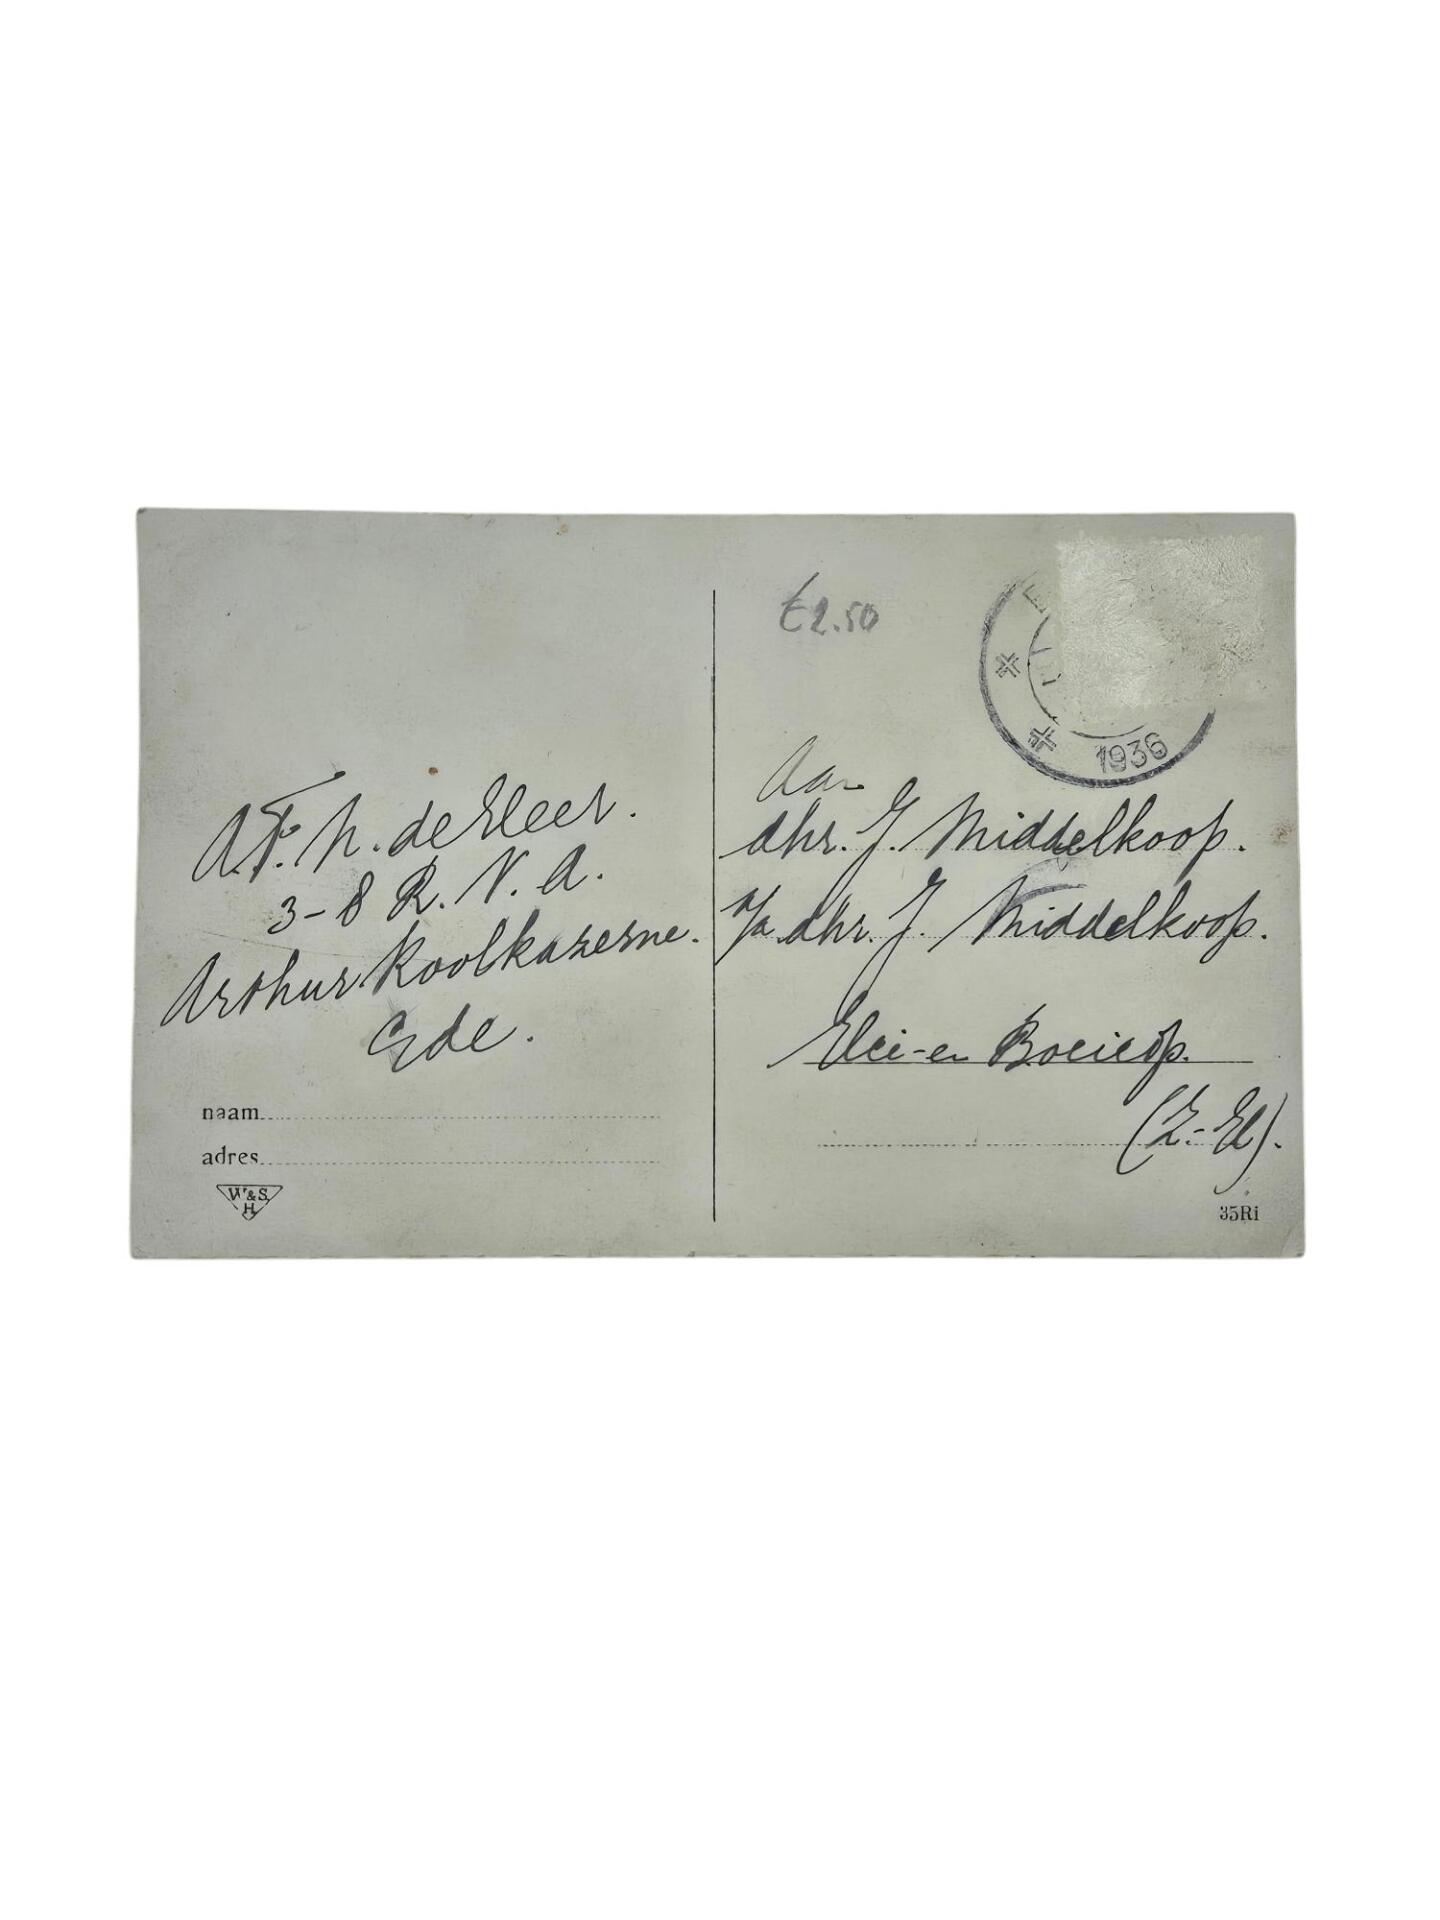 A.F.N. de Heer.
3-8 R. V. A.
Arthur Koolkazerne.
Ede.
naam
adres
W&S
H
€2.50
1936
Aan
dhr. J. Middelkoop.
p/a dhr. J. Middelkoop.
Hei-en Boeicop.
(Z.-H).
35Ri